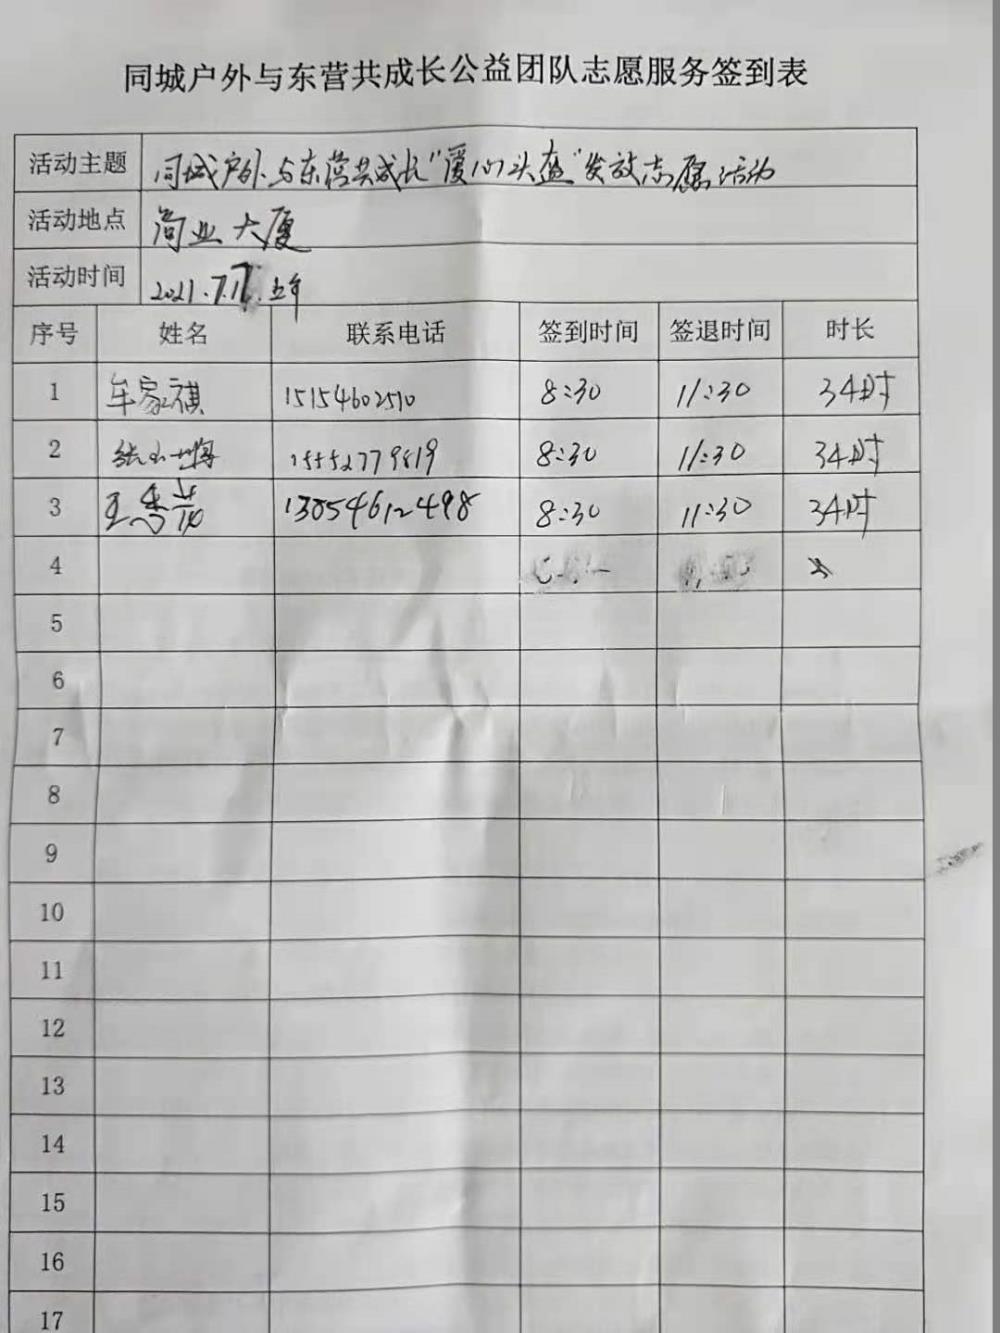 同城户外与东营共成长公益团队志愿服务签到表
活动主题 同城户外与东营共成长"爱心头盔"发放志愿活动
活动地点 商业大厦
活动时间 2021.7.17.上午
序号 姓名 联系电话 签到时间 签退时间 时长
1 车家祺 15154602510 8:30 11:30 3小时
2 15552779819 8:30 11:30 3小时
3 王秀芬 13854612498 8:30 11:30 3小时
4
5
6
7
8
9
10
11
12
13
14
15
16
17